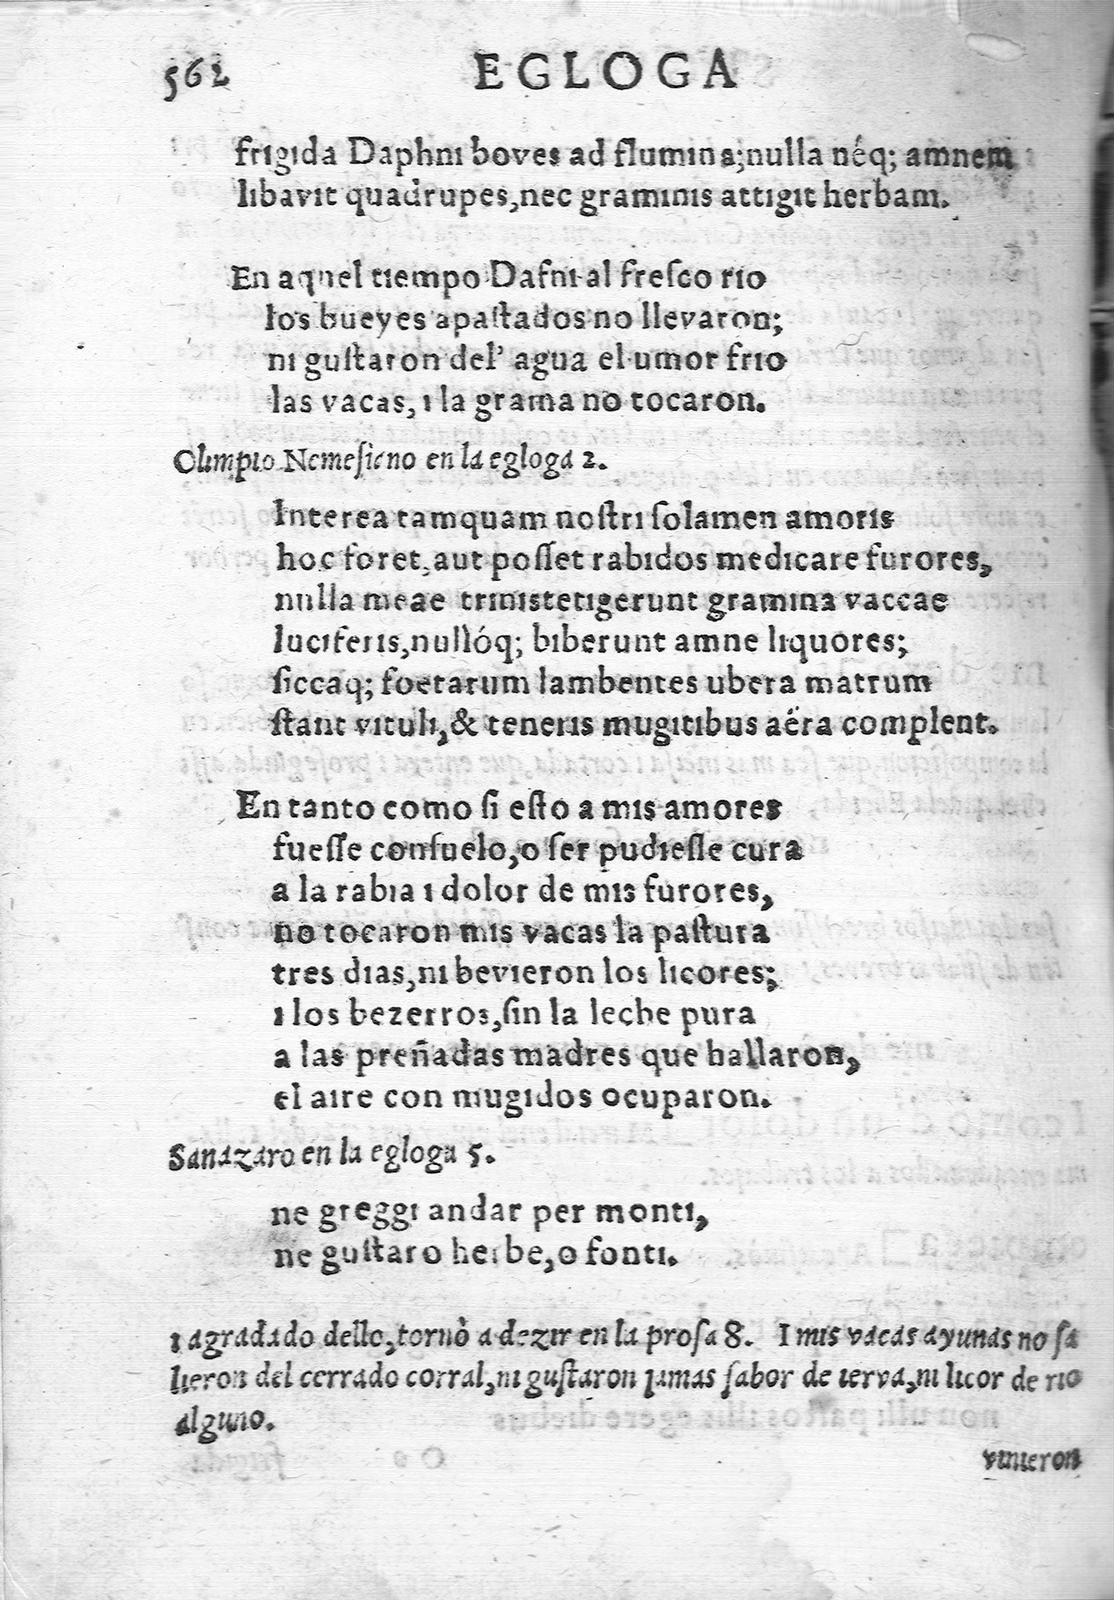 562 EGLOGA
frigida Daphni boves ad flumina; nulla néq; amnem
libavit quadrupes, nec graminis attigit herbam.
En aquel tiempo Dafni al fresco rio
los bueyes apastados no llevaron;
ni gustaron del' agua el umor frio
las vacas, ı la grama no tocaron.
Olimpio Nemesiano en la egloga 2.
Interea tamquam nostri solamen amoris
hoc foret, aut posset rabidos medicare furores,
nulla meae trinis tetigerunt gramina vaccae
luciferis, nullóq; biberunt amne liquores;
siccaq; foetarum lambentes ubera matrum
stant vituli, & teneris mugitibus aëra complent.
En tanto como si esto a mis amores
fuesse consuelo, o ser pudiesse cura
a la rabia ı dolor de mis furores,
no tocaron mis vacas la pastura
tres dias, ni bevieron los licores;
ı los bezerros, sin la leche pura
a las preñadas madres que hallaron,
el aire con mugidos ocuparon.
Sanazaro en la egloga 5.
ne greggi andar per monti,
ne gustaro herbe, o fonti.
ı agradado dello, tornò a dezir en la prosa 8. I mis vacas ayunas no sa
lieron del cerrado corral, ni gustaron jamas sabor de ierva, ni licor de rio
alguno.
vinieron